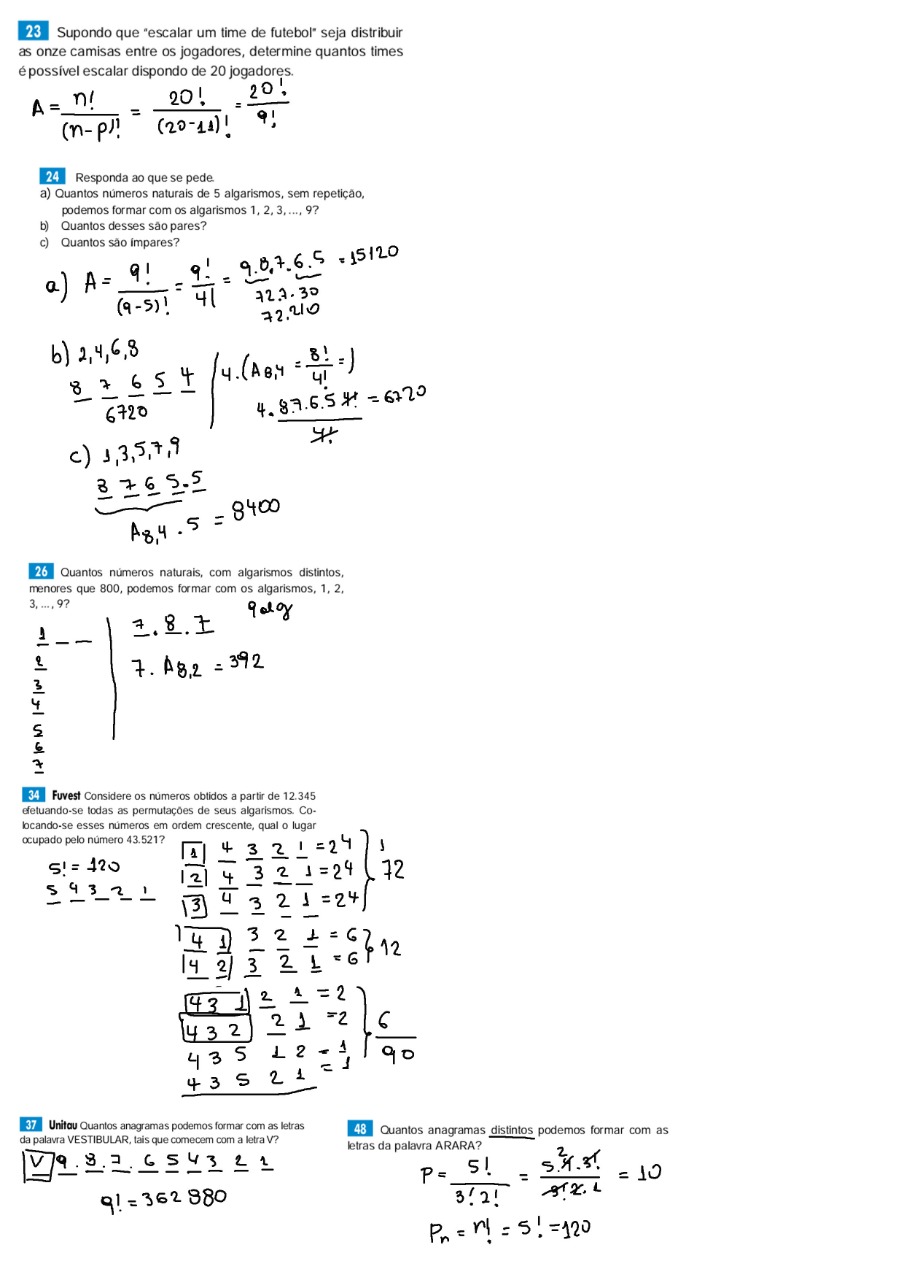 23 Supondo que "escalar um time de futebol" seja distribuir
as onze camisas entre os jogadores, determine quantos times
é possível escalar dispondo de 20 jogadores.
A = n!/(n-p)! = 20!/(20-11)! = 20!/9!
24 Responda ao que se pede.
a) Quantos números naturais de 5 algarismos, sem repetição,
podemos formar com os algarismos 1, 2, 3, ..., 9?
b) Quantos desses são pares?
c) Quantos são ímpares?
a) A = 9!/(9-5)! = 9!/4! = 9.8.7.6.5 = 15120
72.7.30
72.210
b) 2,4,6,8
8 7 6 5 4
6720
4.(A8,4 = 8!/4! = )
4.8.7.6.5 4!/4! = 6720
c) 1,3,5,7,9
8 7 6 5.5
A8,4 . 5 = 8400
26 Quantos números naturais, com algarismos distintos,
menores que 800, podemos formar com os algarismos, 1, 2,
3, ..., 9?
9 alg
1 _ _
2
3
4
5
6
7
7.8.7
7. A8,2 = 392
34 Fuvest Considere os números obtidos a partir de 12.345
efetuando-se todas as permutações de seus algarismos. Co-
locando-se esses números em ordem crescente, qual o lugar
ocupado pelo número 43.521?
5! = 120
5 4 3 2 1
1 4 3 2 1 = 24
2 4 3 2 1 = 24
3 4 3 2 1 = 24
72
4 1 3 2 1 = 6
4 2 3 2 1 = 6
12
4 3 1 2 1 = 2
4 3 2 2 1 = 2
4 3 5 1 2 = 1
4 3 5 2 1 = 1
6
90
37 Unitau Quantos anagramas podemos formar com as letras
da palavra VESTIBULAR, tais que comecem com a letra V?
V 9.8.7.6 5 4 3 2 1
9! = 362 880
48 Quantos anagramas distintos podemos formar com as
letras da palavra ARARA?
P = 5!/3!2! = 5.4.3!/3!2.1 = 10
2
Pn = n! = 5! = 120